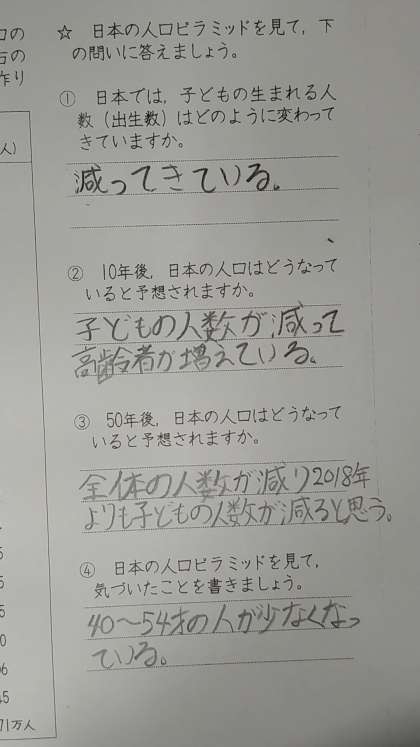 口の
右の
作り
人)
☆ 日本の人口ピラミッドを見て，下
の問いに答えましょう。
① 日本では，子どもの生まれる人
数（出生数）はどのように変わって
きていますか。
減ってきている。
② 10年後，日本の人口はどうなって
いると予想されますか。
子どもの人数が減って
高齢者が増えている。
③ 50年後，日本の人口はどうなって
いると予想されますか。
全体の人数が減り2018年
よりも子どもの人数が減ると思う。
④ 日本の人口ピラミッドを見て，
気づいたことを書きましょう。
40〜54才の人が少なくなっ
ている。
5
5
5
0
06
45
71万人